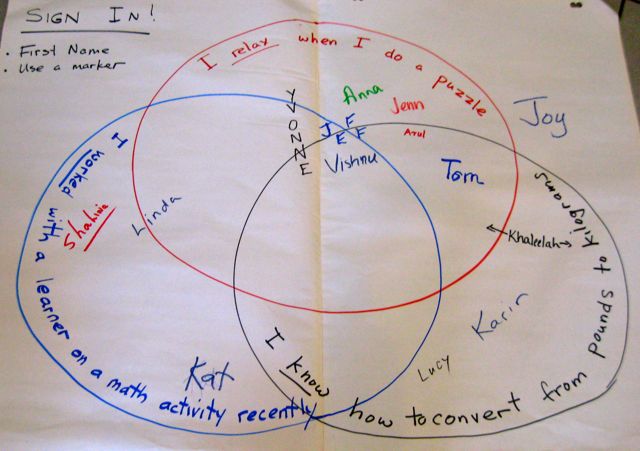 SIGN IN!
· First Name
· Use a marker
I relax when I do a puzzle
YVONNE
Anna
Jenn
JEFF
Arul
Joy
Vishnu
Tom
I worked with a learner on a math activity recently
Shahina
Linda
Khaleelah
Karin
Lucy
Kat
I know how to convert from pounds to kilograms